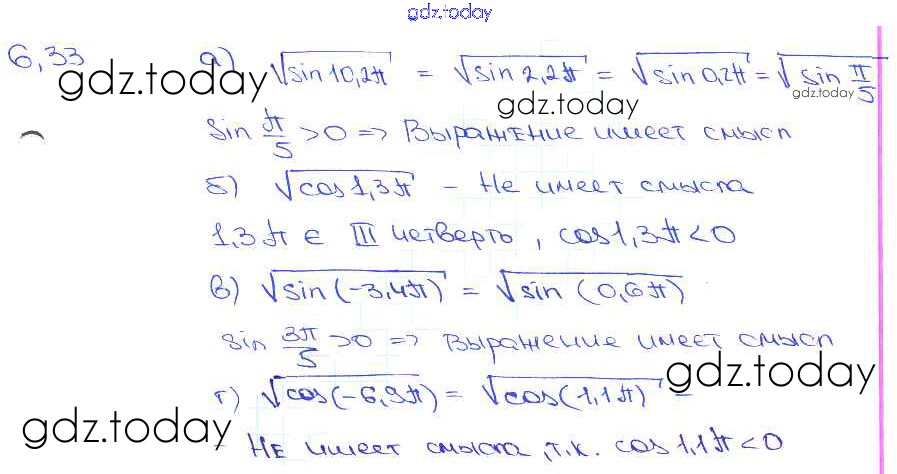 gdz.today
6,33 а) √sin 10,2π = √sin 2,2π = √sin 0,2π = √sin π/5
gdz.today gdz.today gdz.today
sin π/5 >0 => Выражение имеет смысл
б) √cos 1,3π – Не имеет смысла
1,3π ∈ III четверть, cos 1,3π <0
в) √sin (-3,4π) = √sin (0,6π)
sin 3π/5 >0 => Выражение имеет смысл
gdz.today
г) √cos(-6,9π) = √cos(1,1π) –
gdz.today
– Не имеет смысла, т.к. cos 1,1π <0